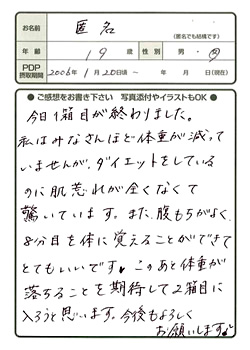 お名前 匿名
(匿名でも結構です)
年齢 19歳 性別 男・女
PDP摂取期間 2006年1月20日頃〜 年 月 日(現在)
●ご感想をお書き下さい 写真添付やイラストもOK●
今日1箱目が終わりました。
私はみなさんほど体重が減って
いませんが、ダイエットをしている
のに肌荒れが全くなくて
驚いています。また、腹もちがよく、
8分目を体に覚えることができて
とてもいいです♪このあと体重が
落ちることを期待して2箱目に
入ろうと思います。今後もよろしく
お願いします♪